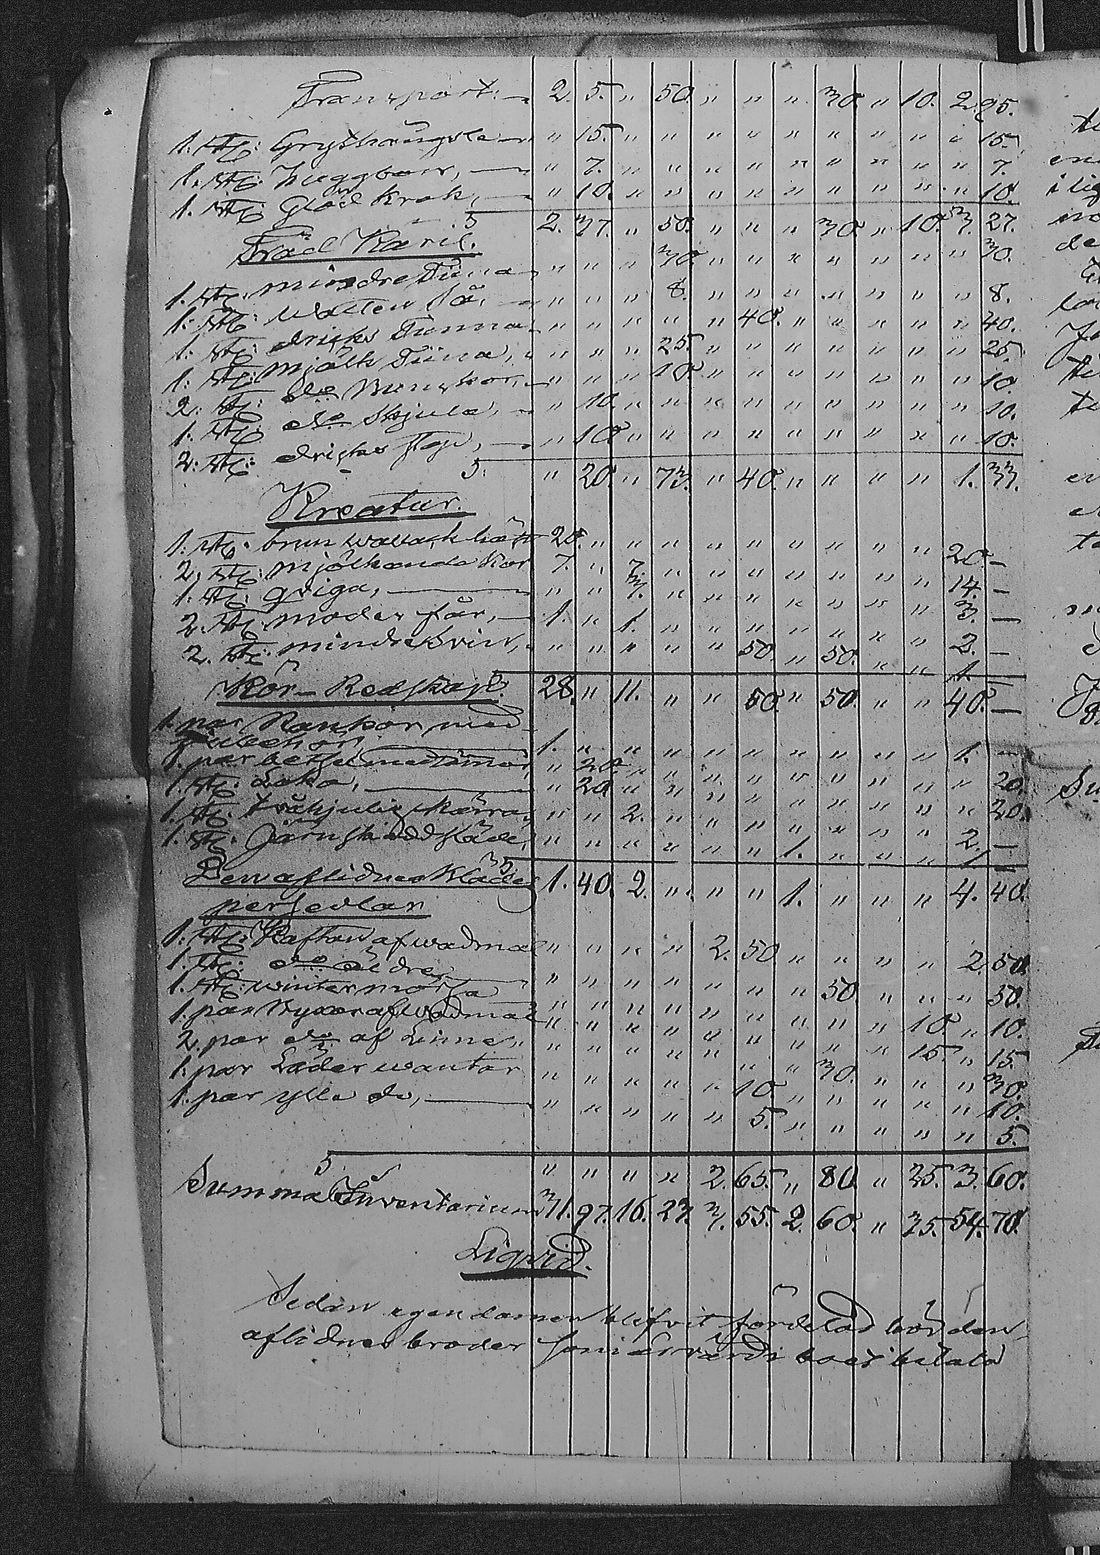 Transport. — 2. 5. „ 50. „ „ „ 30. „ 10. 2. 95.
1. st: Grythängsle — „ 15. „ „ „ „ „ „ „ „ „ 15.
1. st: — „ 7. „ „ „ „ „ „ „ „ „ 7.
1. st: Glöd krok, — „ 10. „ „ „ „ „ „ „ „ „ 10.
S 2. 37. „ 50. „ „ „ 30. „ 10. 3. 27.
Träd Käril.
1. st: mindre Tina — „ „ „ 30. „ „ „ „ „ „ „ 30.
1. st: Watten så, — „ „ „ 8. „ „ „ „ „ „ „ 8.
1. st: dricks Tunna — „ „ „ „ „ 40. „ „ „ „ „ 40.
1. st: mjölk Tina, „ „ „ 25. „ „ „ „ „ „ „ 25.
2. st: do Bunkar, — „ „ „ 10. „ „ „ „ „ „ „ 10.
1. st: do Skjula, — „ 10. „ „ „ „ „ „ „ „ „ 10.
2. st: dricks — „ 10. „ „ „ „ „ „ „ „ „ 10.
S. „ 20. „ 73. „ 40. „ „ „ „ 1. 33.
Kreatur.
1. st: brun wallack häst 20. „ „ „ „ „ „ „ „ „ 20 —
2. st: mjölkande Kor 7. „ 7. „ „ „ „ „ „ „ 14. —
1. st: qviga, — „ „ 3. „ „ „ „ „ „ „ 3. —
2. st: moder får, — 1. „ 1. „ „ „ „ „ „ „ 2. —
2. st: mindre svin, „ „ „ „ „ 50. „ 50. „ „ 1. —
S 28. „ 11. „ „ 50. „ 50. „ „ 40. —
Kör-Redskap.
1. par Rankor med
— 1. „ „ „ „ „ „ „ „ „ 1. —
1. par betsel med tömar, „ 20. „ „ „ „ „ „ „ „ „ 20.
1. st: Loka, — „ 20. „ „ „ „ „ „ „ „ „ 20.
1. st: tvåhjulig Kärra, „ „ 2. „ „ „ „ „ „ „ 2. —
1. st: Järnskodd släde, „ „ „ „ „ „ 1. „ „ „ 1 —
S 1. 40. 2. „ „ „ 1. „ „ „ 4. 40.
Den aflidnes Kläde
persedlar
1. st: Kaftan af wadmal „ „ „ „ 2. 50 „ „ „ „ 2. 50
1. st: do äldre „ „ „ „ „ „ „ 50. „ „ „ 50.
1. st: winter mössa „ „ „ „ „ „ „ „ „ 10. „ 10.
1. par Byxor af wadmal „ „ „ „ „ „ „ „ „ 15. „ 15.
2. par do af Linne, „ „ „ „ „ „ „ 30. „ „ „ 30.
1. par Läder wantar „ „ „ „ „ 10. „ „ „ „ „ 10.
1. par ylle do, — „ „ „ „ „ 5. „ „ „ „ „ 5.
S. „ „ „ „ 2. 65. „ 80. „ 25. 3. 60.
Summa Inventarium 31. 97. 16. 23. 3. 55. 2. 60. „ 35. 54. 70.
Liqvid.
Sedan egendomen blifvit fördelad bör den
aflidnes broder boet betala